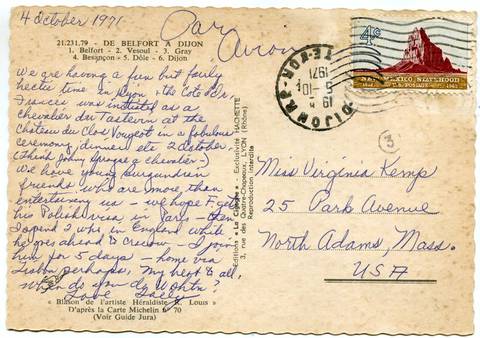 4 October 1971
Par
Avion
21.231.79 - DE BELFORT A DIJON
1. Belfort - 2. Vesoul - 3. Gray
4. Besançon - 5. Dôle - 6. Dijon
We are having a fun but fairly
hectic time in Lyon & the Cote d'Or
Frances was instituted as a
chevalier du Tastevin at the
Chateau du Clos Vougeot in a fabulous
ceremony, dinner etc 2 October
(Think of a chevalier -)
We have young burgundian
friends who are more than
entertaining us - we hope F gets
his Polish visa in Paris - then
I spend 2 wks in England while
he goes ahead to Cracow - I join
him for 5 days - home via
Lisbon perhaps, my best to all,
When do you go
Love
« Blason de l'artiste Héraldiste R. Louis »
D'après la Carte Michelin n° 70
(Voir Guide Jura)
Editions « La Cigogne » - Exclusivité HACHETTE
3, rue des Quatre-Chapeaux, LYON (Rhône)
Reproduction interdite
DIJON R.P.
19 H
5 - 10
1971
CÔTE-D'OR
4¢
NEW MEXICO STATEHOOD
1912 U.S. POSTAGE 1962
3
Miss Virginia Kemp
25 Park Avenue
North Adams, Mass.
USA